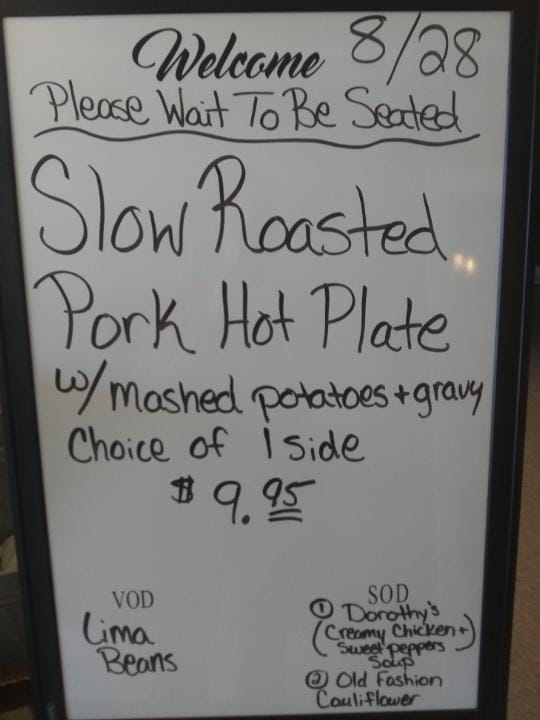 Welcome 8/28
Please Wait To Be Seated
Slow Roasted
Pork Hot Plate
w/ mashed potatoes + gravy
Choice of 1 side
$ 9.95
VOD
Lima
Beans
SOD
① Dorothy's
(Creamy Chicken +
Sweet peppers)
Soup
② Old Fashion
Cauliflower